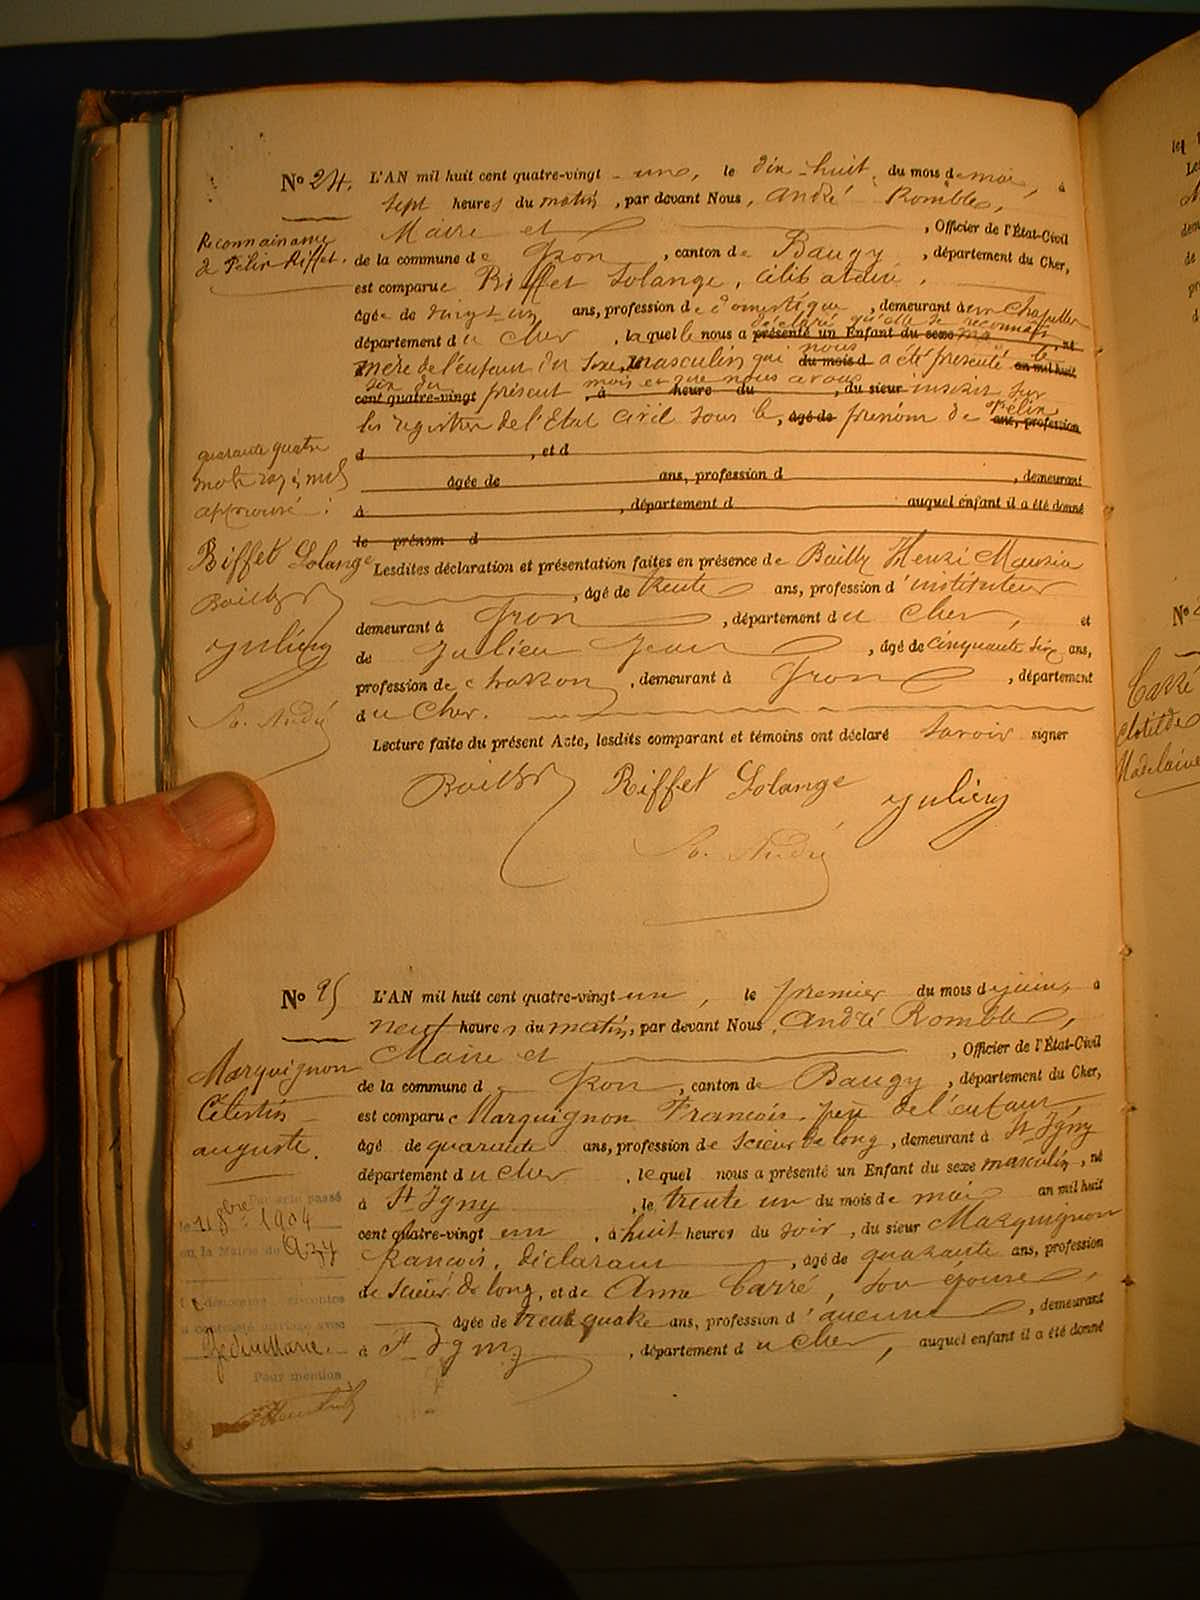 No 24. L'AN mil huit cent quatre-vingt-un, le dix-huit du mois de mai, à
sept heures du matin, par devant Nous, André Romble,
Maire et , Officier de l'État-Civil
Reconnaissance
de Félix Riffet.
de la commune de Gron, canton de Baugy, département du Cher,
est comparue Riffet Solange, célibataire,
âgée de vingt-un ans, profession de domestique, demeurant à la Chapelle
département du Cher, laquelle nous a présenté un Enfant du sexe déclaré qu'elle se reconnait né
mère de l'enfant du sexe masculin qui nous du mois d a été présenté le an mil huit
cent quatre-vingt six du présent mois et que nous avons à heure du , du sieur inscrit sur
les registres de l'Etat Civil sous le, âgé de prénom de Félix ans, profession
quarante quatre
mots rayés nuls
approuvé :
d , et d
âgée de ans, profession d , demeurant
à , département d auquel enfant il a été donné
le prénom d
Riffet Solange
Lesdites déclaration et présentation faites en présence de Bailly Henri
, âgé de trente ans, profession d'instituteur
Bailly
demeurant à Gron, département du Cher, et
Julien
de Julien Jean, âgé de cinquante six ans,
profession de charron, demeurant à Gron, département
du Cher.
André
Lecture faite du présent Acte, lesdits comparant et témoins ont déclaré savoir signer
Bailly Riffet Solange Julien
André
No 25 L'AN mil huit cent quatre-vingt-un, le premier du mois de juin, à
neuf heures du matin, par devant Nous, André Romble,
Maire et , Officier de l'État-Civil
Marquignon
Célestin
auguste.
de la commune de Gron, canton de Baugy, département du Cher,
est comparu Marquignon François, père de l'enfant,
âgé de quarante ans, profession de scieur de long, demeurant à St Igny
département du Cher, lequel nous a présenté un Enfant du sexe masculin, né
à St Igny, le trente un du mois de mai an mil huit
cent quatre-vingt un, à huit heures du soir, du sieur Marquignon
françois, déclarant, âgé de quarante ans, profession
de scieur de long, et de Anne Carré, son épouse,
âgée de trente quatre ans, profession d'aucune, demeurant
à St Igny, département du Cher, auquel enfant il a été donné
Par acte passé
le 8bre 1904
en la Mairie de Azy
a contracté mariage avec
Marie.
Pour mention
No
Carré
Clotilde
Madelaine